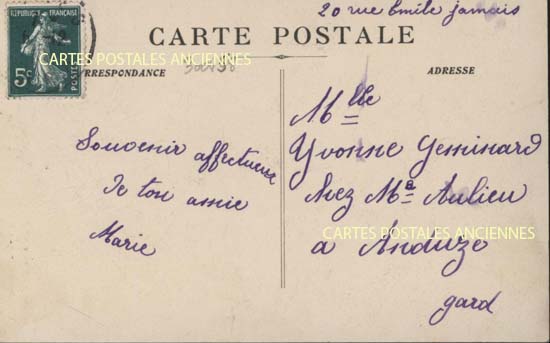 20 rue Emile jamais
REPUBLIQUE FRANÇAISE
5c POSTES
CARTE POSTALE
CARTES POSTALES ANCIENNES
RRESPONDANCE
ADRESSE
Souvenir affectueux
De ton amie
Marie
Mlle
Yvonne Geminard
chez Ma Aulieu
CARTES POSTALES ANCIENNES
a Anduze
gard